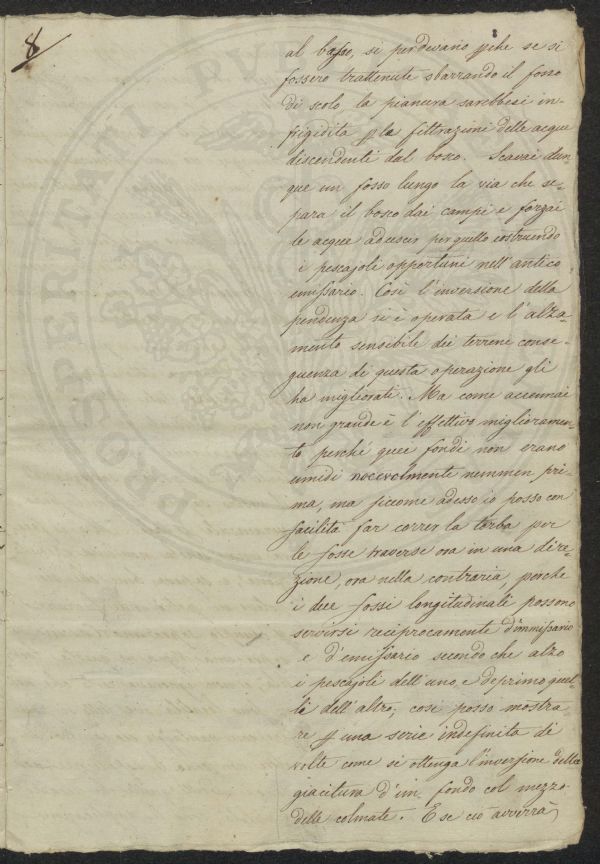 8
al basso, si perdevano pche se si
fossero trattenute sbarrando il fosso
di scolo, la pianura sarebbesi in-
frigidita p la filtrazioni delle acque
discendenti dal bosco. Scavai dun-
que un fosso lungo la via che se-
para il bosco dai campi e forzai
le acque ad uscir per quello costruendo
i pescajoli opportuni nell'antico
emissario. Così l'inversione della
pendenza si è operata e l'alza-
mento sensibile dei terreni conse-
guenza di questa operazione gli
ha migliorati. Ma come accennai
non grande è l'effettivo miglioramen-
to perché quei fondi non erano
umidi nocevolmente nemmen pri-
ma, ma siccome adesso io posso con
facilità far correr la torba per
le fosse traverse ora in una dire-
zione, ora nella contraria, perche
i due fossi longitudinali possono
servirsi reciprocamente d'immissario
e d'emissario secondo che alzo
i pescajoli dell'uno, e deprimo quel-
li dell'altro; così posso mostra-
re p una serie indefinita di
volte come si ottenga l'inversione della
giacitura d'un fondo col mezzo
delle colmate. E se ciò avverrà
PROSPERITATI PVB